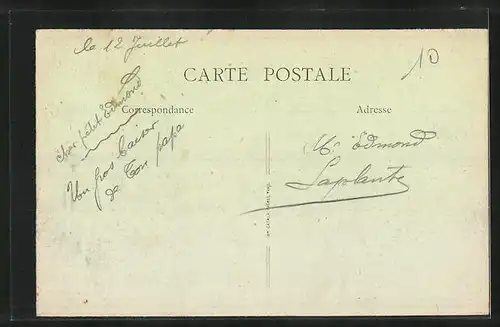 le 12 Juillet
10
CARTE POSTALE
Correspondance
Adresse
cher petit Edmond
Un gros baiser
de ton papa
Mr Edmond
Laplante